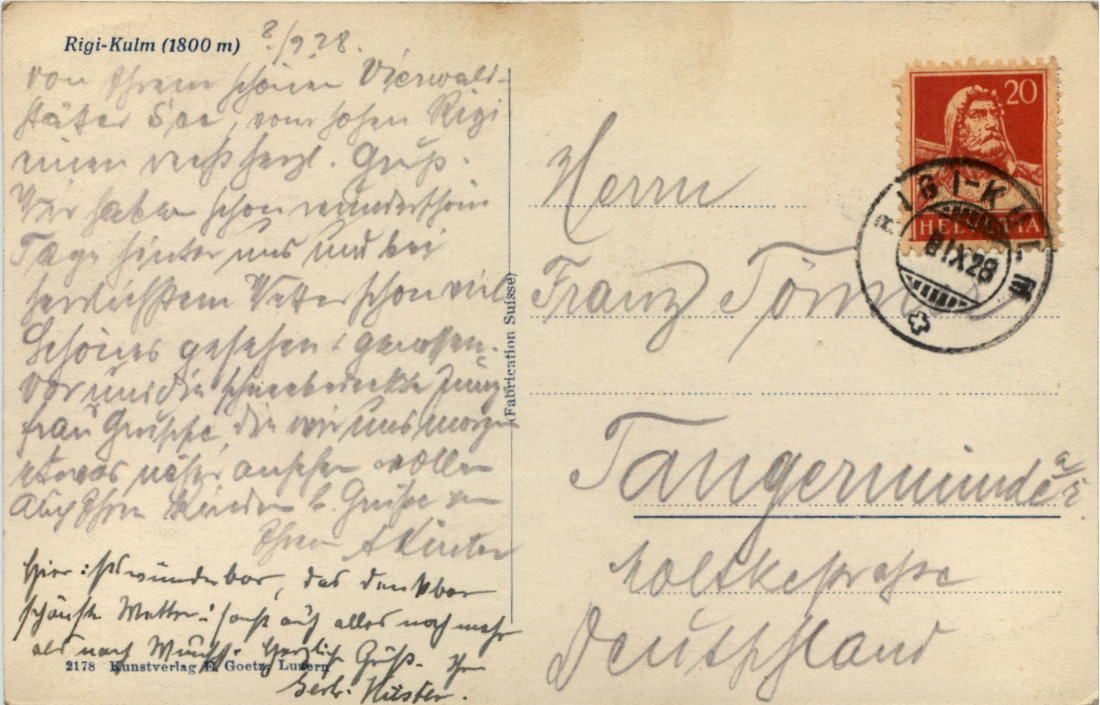 Rigi-Kulm (1800 m) 8/9 28.
von Ihrem schönen Vierwald-
stätter See, vom hohen Rigi
einen recht herzl. Gruß.
Wir haben schon wunderschöne
Tage hinter uns und bei
herrlichstem Wetter schon viel
Schönes gesehen u. genossen.
Vor uns die schneebedeckte Jung-
frau Gruppe, die wir uns morgen
etwas näher ansehen wollen
Ihren Kindern h. Grüße von
Ihrem
Hier ists wunderbar, das denkbar
schönste Wetter: sonst auch alles noch mehr
als nach Wunsch. Herzlich Gruß. Ihr
2178 Kunstverlag E. Goetz, Luzern
(Fabrication Suisse)
20
HELVETIA
RIGI-KULM
8IX28
Herrn
Franz
Tangermünde
a/E.
Moltkestraße
Deutschland